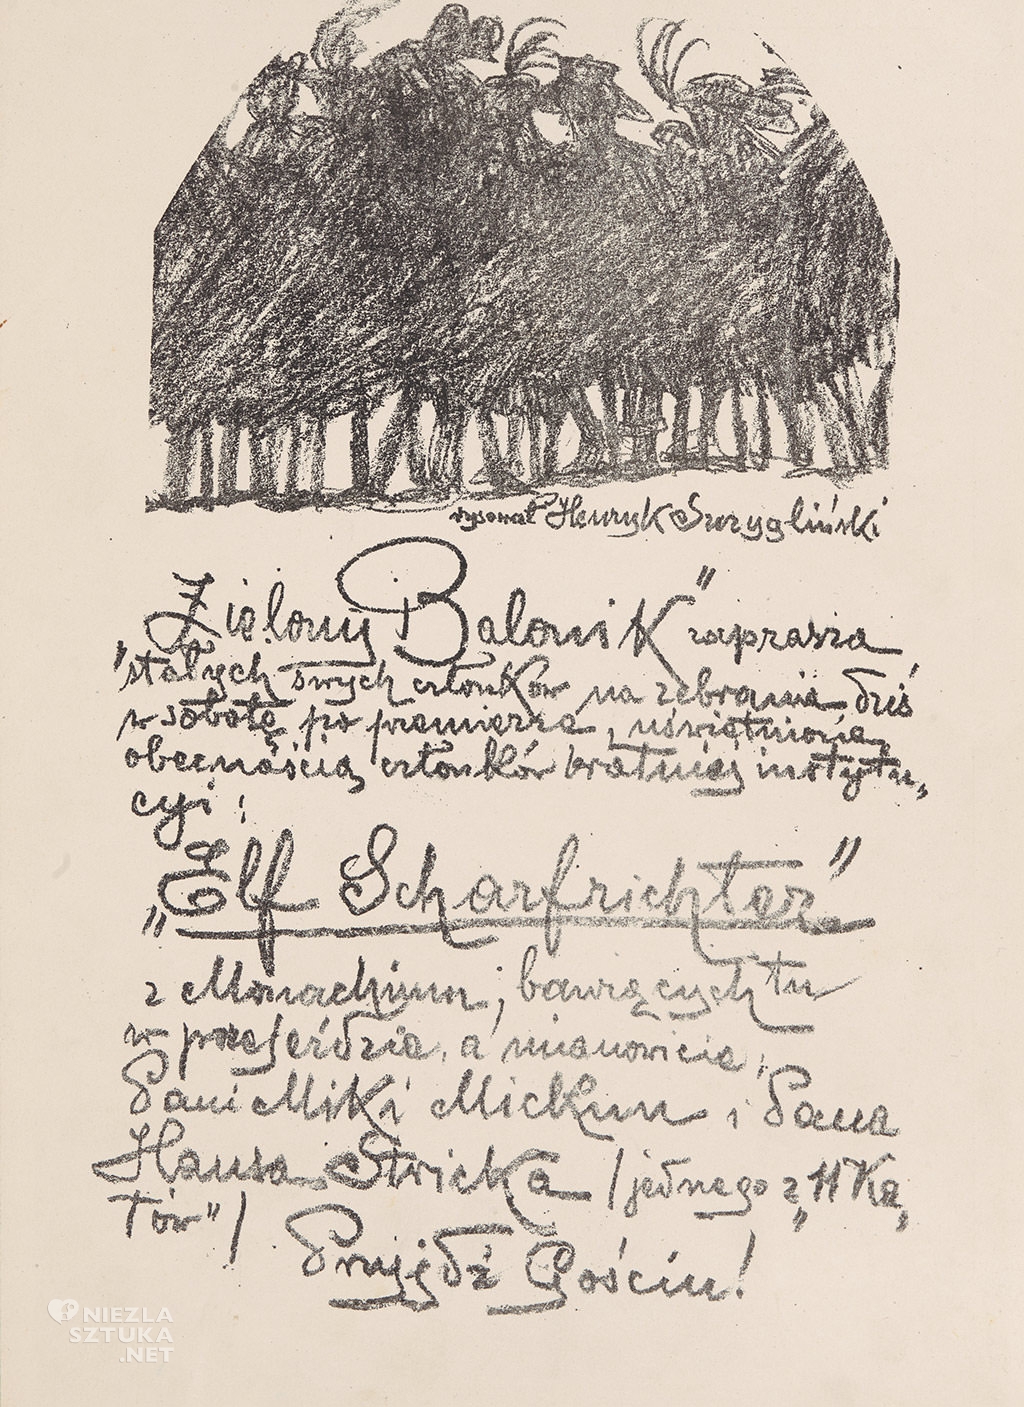 rysował Henryk Szczygliński
"Zielony Balonik" zaprasza
stałych swych członków na zebranie dziś
w sobotę po premierze, uświetnione
obecnością członków bratniej instytu„
cyi:
„Elf Scharfrichter"
z Monachium, bawiących tu
w przejeździe, a mianowicie,
Pani Miki Mickun i Pana
Hansa Stricka /jednego z „11 Ka„
tów"/
Przyjdź Gościu!
NIEZLA
SZTUKA
.NET